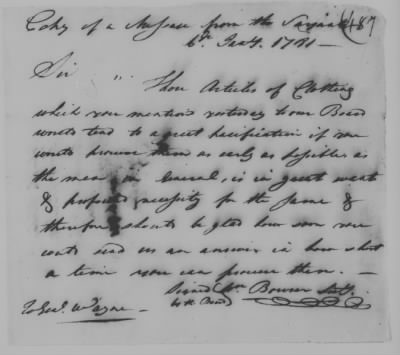 Copy of a Message from the Sergeants (487
6th Jany. 1781 —
Sir Those Articles of Clothing
which you mention'd yesterday to our Board
would tend to a great pacification if you
would procure them as early as possible as
the men in General, is in great want
& necessity for the same &
therefore should be glad how soon you
could send us an answer in how short
a time you can procure them. —
Signed Wm Bowzer Secy.
to the Board
To Genl. Wayne